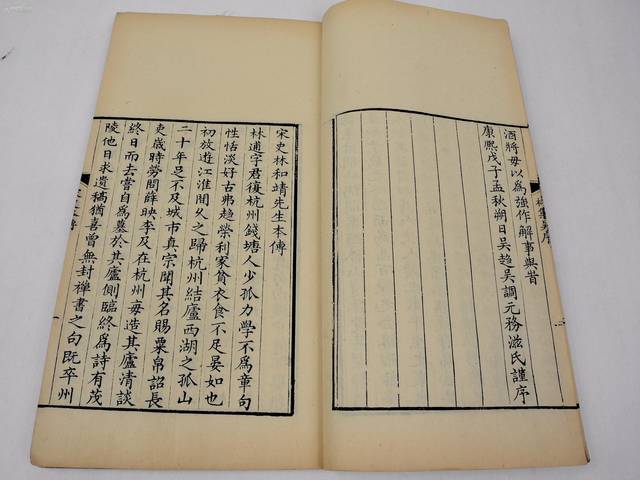 酒將毋以為強作解事與皆
康熙戊子孟秋朔日吳趨吳調元務滋氏謹序
宋史林和靖先生本傳
林逋字君復杭州錢塘人少孤力學不為章句
性恬淡好古弗趨榮利家貧衣食不足晏如也
初放遊江淮間久之歸杭州結廬西湖之孤山
二十年足不及城市真宗聞其名賜粟帛詔長
吏歲時勞問薛映李及在杭州每造其廬清談
終日而去嘗自為墓於其廬側臨終為詩有茂
陵他日求遺稿猶喜曾無封禪書之句既卒州